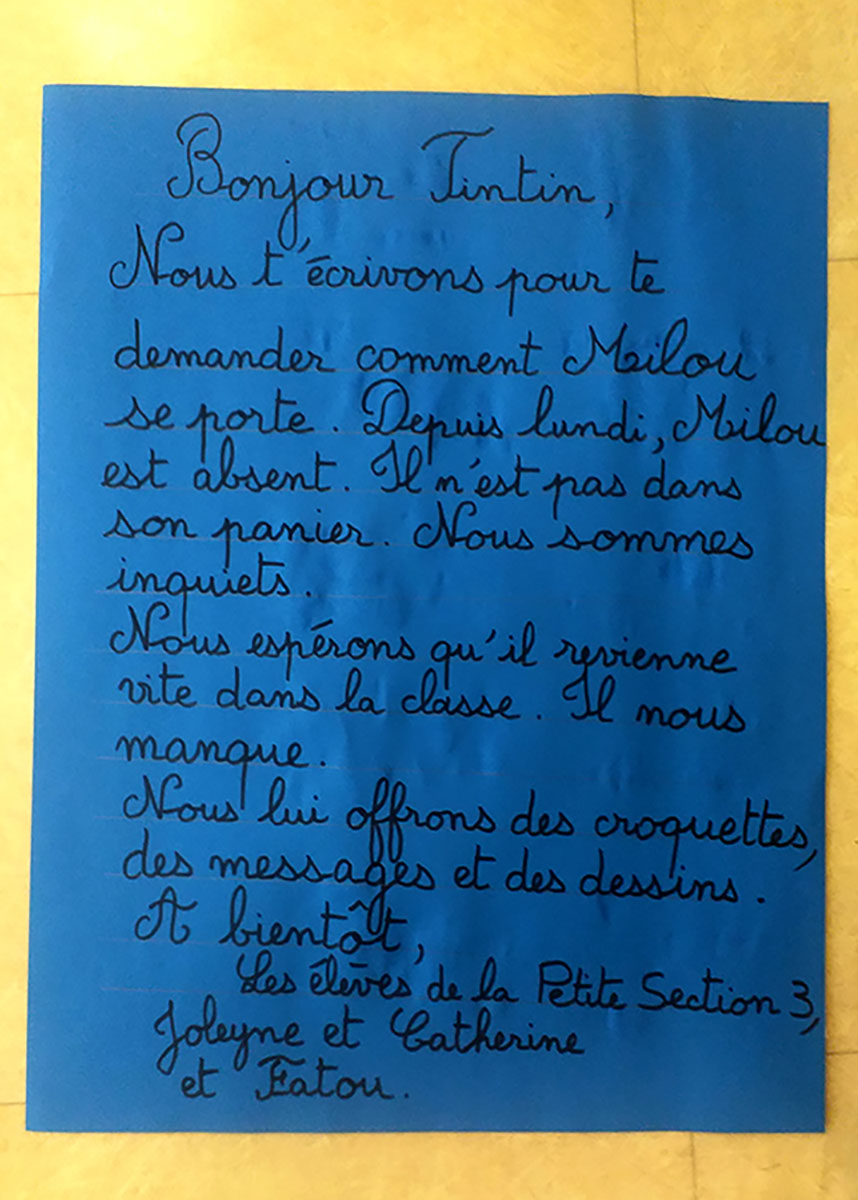 Bonjour Tintin,
Nous t'écrivons pour te
demander comment Milou
se porte. Depuis lundi, Milou
est absent. Il n'est pas dans
son panier. Nous sommes
inquiets.
Nous espérons qu'il revienne
vite dans la classe. Il nous
manque.
Nous lui offrons des croquettes,
des messages et des dessins.
A bientôt,
Les élèves de la Petite Section 3,
Joleyne et Catherine
et Fatou.